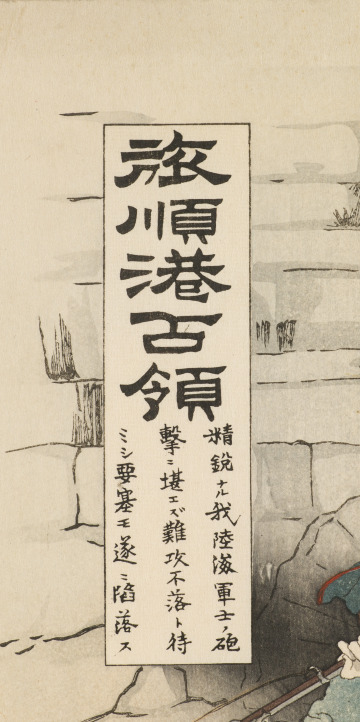 旅順港占領
精鋭ナル我陸海軍士ノ砲
撃ニ堪エズ難攻不落ト待
ミシ要塞モ遂ニ陥落ス